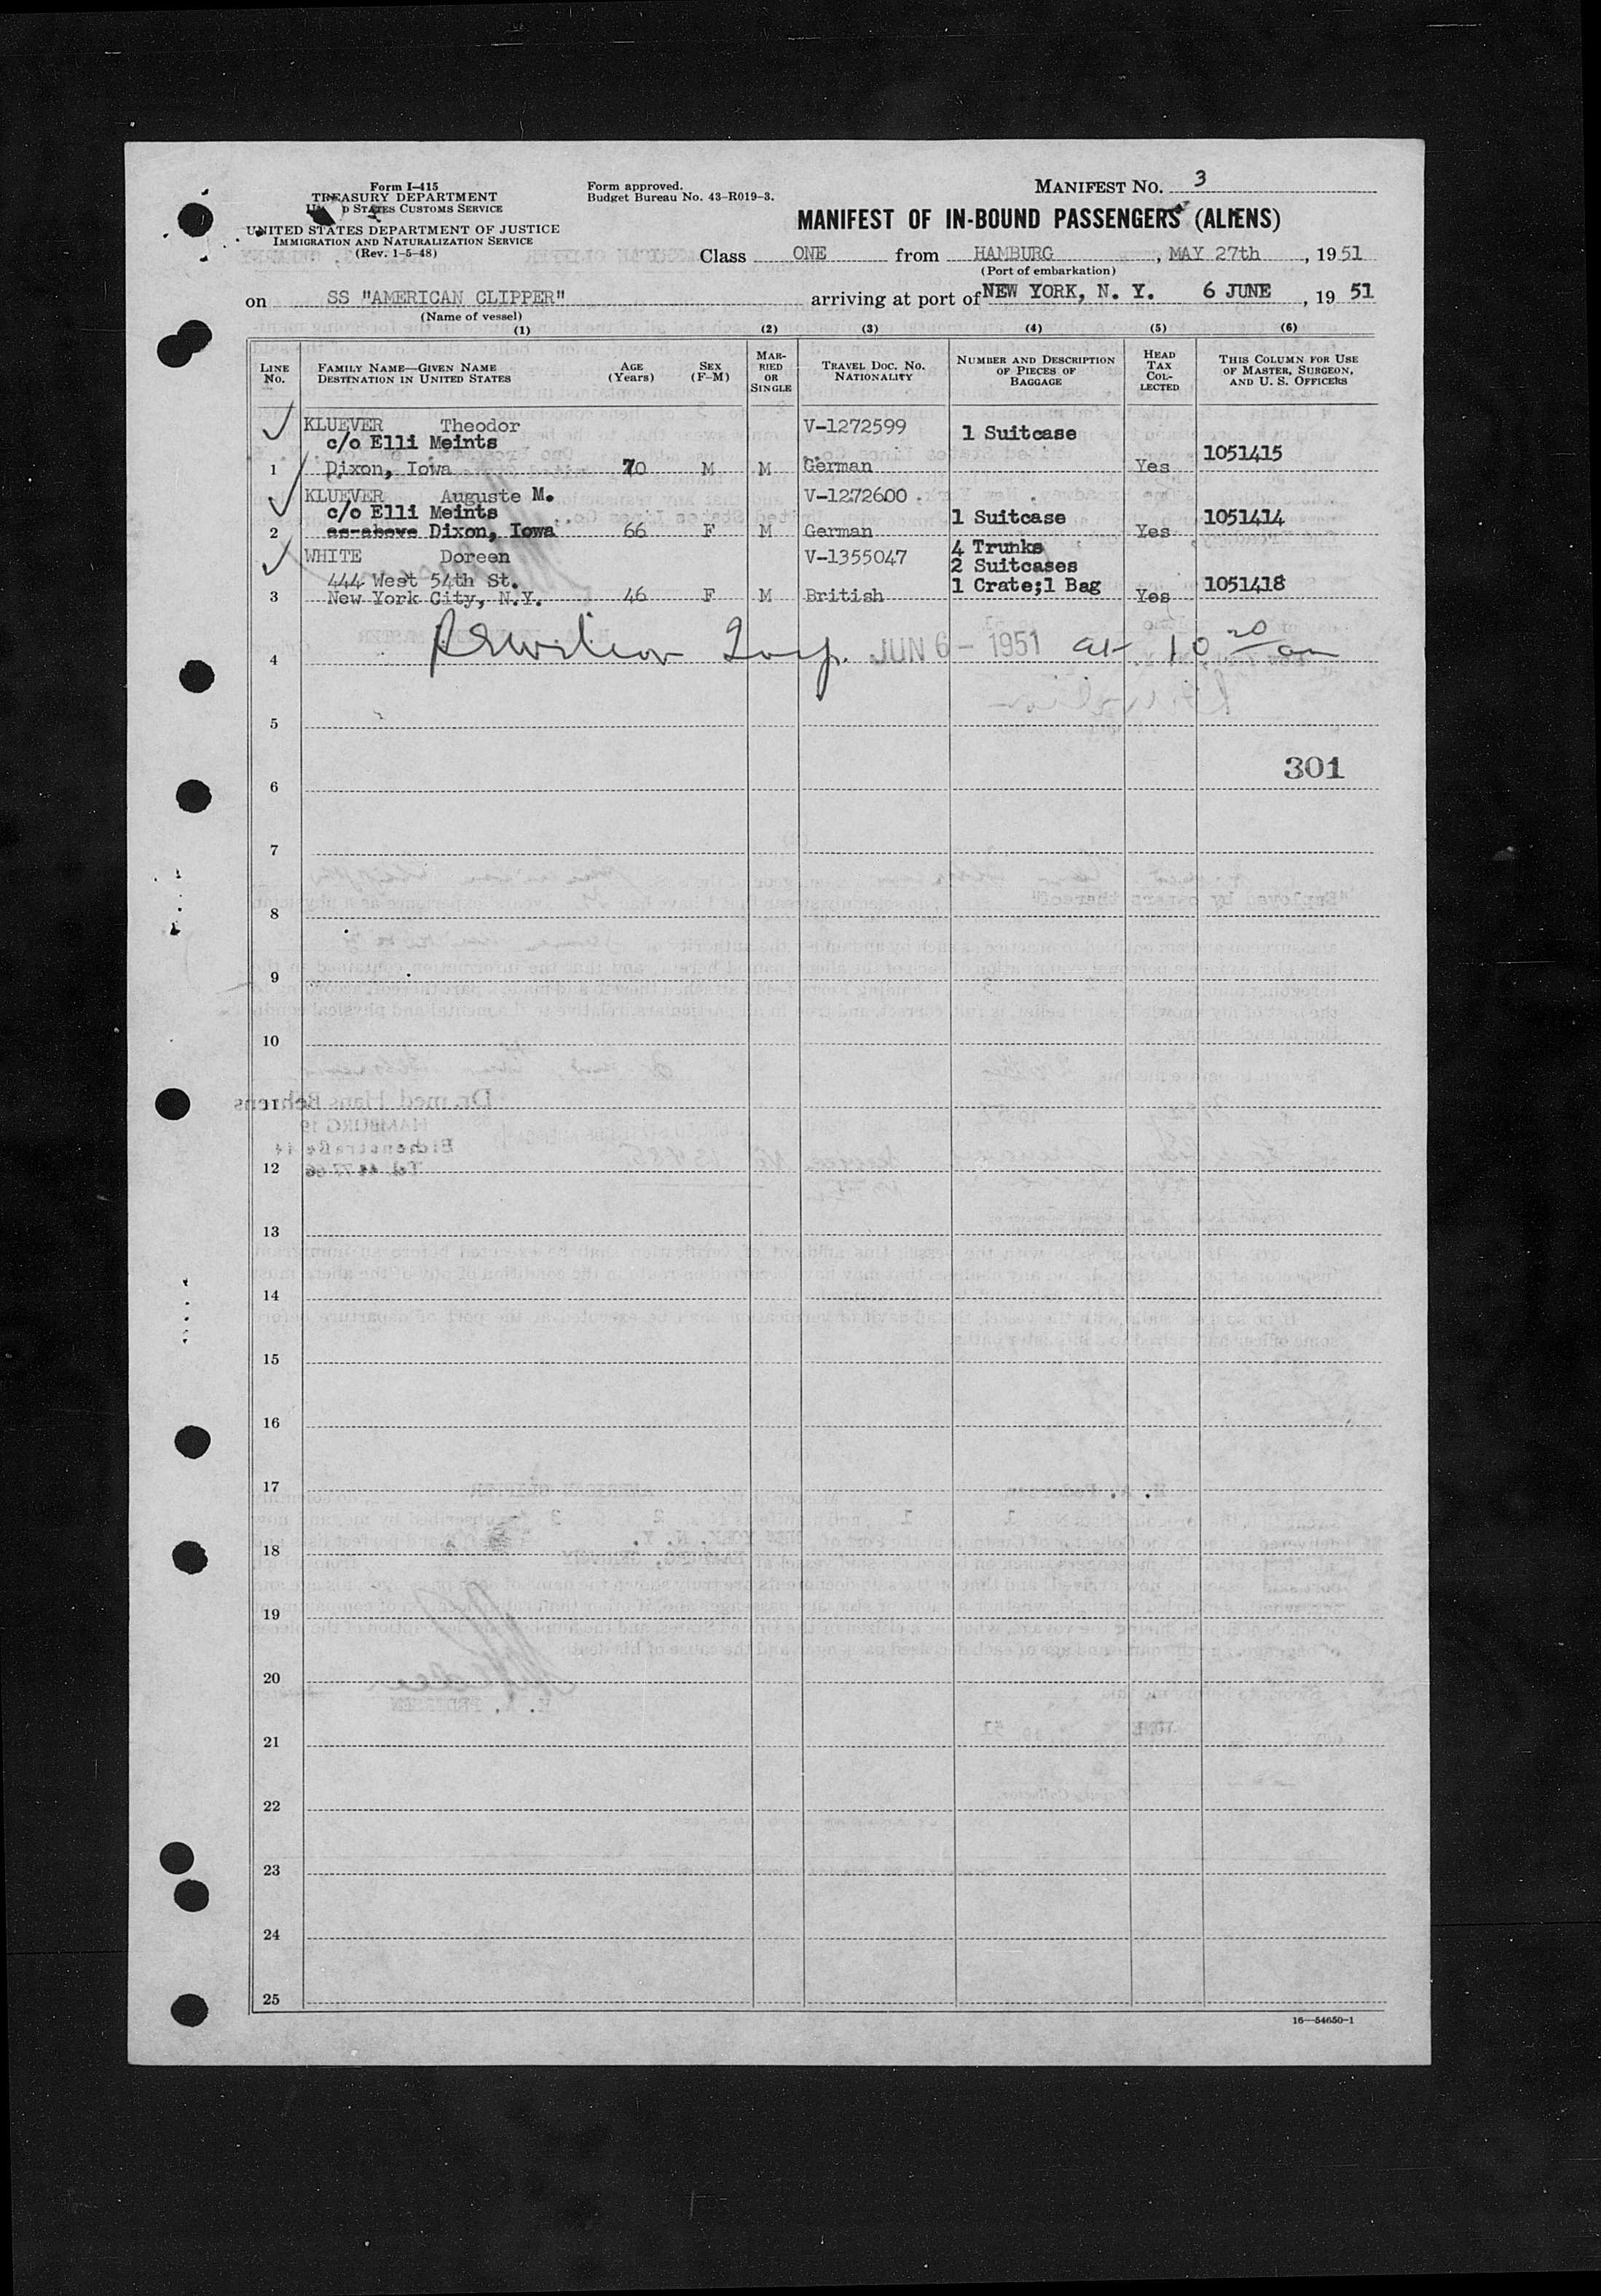 Form I-415
TREASURY DEPARTMENT
UNITED STATES CUSTOMS SERVICE
UNITED STATES DEPARTMENT OF JUSTICE
IMMIGRATION AND NATURALIZATION SERVICE
(Rev. 1-5-48)
Form approved.
Budget Bureau No. 43-R019-3.
MANIFEST NO. 3
MANIFEST OF IN-BOUND PASSENGERS (ALIENS)
Class ONE from HAMBURG, MAY 27th, 1951
(Port of embarkation)
on SS "AMERICAN CLIPPER" arriving at port of NEW YORK, N. Y. 6 JUNE, 19 51
(Name of vessel)
(1) (2) (3) (4) (5) (6)
LINE No. FAMILY NAME—GIVEN NAME DESTINATION IN UNITED STATES AGE (Years) SEX (F-M) MARRIED OR SINGLE TRAVEL DOC. NO. NATIONALITY NUMBER AND DESCRIPTION OF PIECES OF BAGGAGE HEAD TAX COLLECTED THIS COLUMN FOR USE OF MASTER, SURGEON, AND U. S. OFFICERS
KLUEVER Theodor V-1272599 1 Suitcase
c/o Elli Meints 1051415
1 Dixon, Iowa 70 M M German Yes
KLUEVER Auguste M. V-1272600
c/o Elli Meints 1 Suitcase 1051414
2 as above Dixon, Iowa 66 F M German Yes
WHITE Doreen V-1355047 4 Trunks
2 Suitcases
444 West 54th St. 1 Crate;1 Bag 1051418
3 New York City, N.Y. 46 F M British Yes
4 Insp. JUN 6 - 1951 at 10 20 am
5
301
6
7
8
9
10
11
12
13
14
15
16
17
18
19
20
21
22
23
24
25
16—54650-1